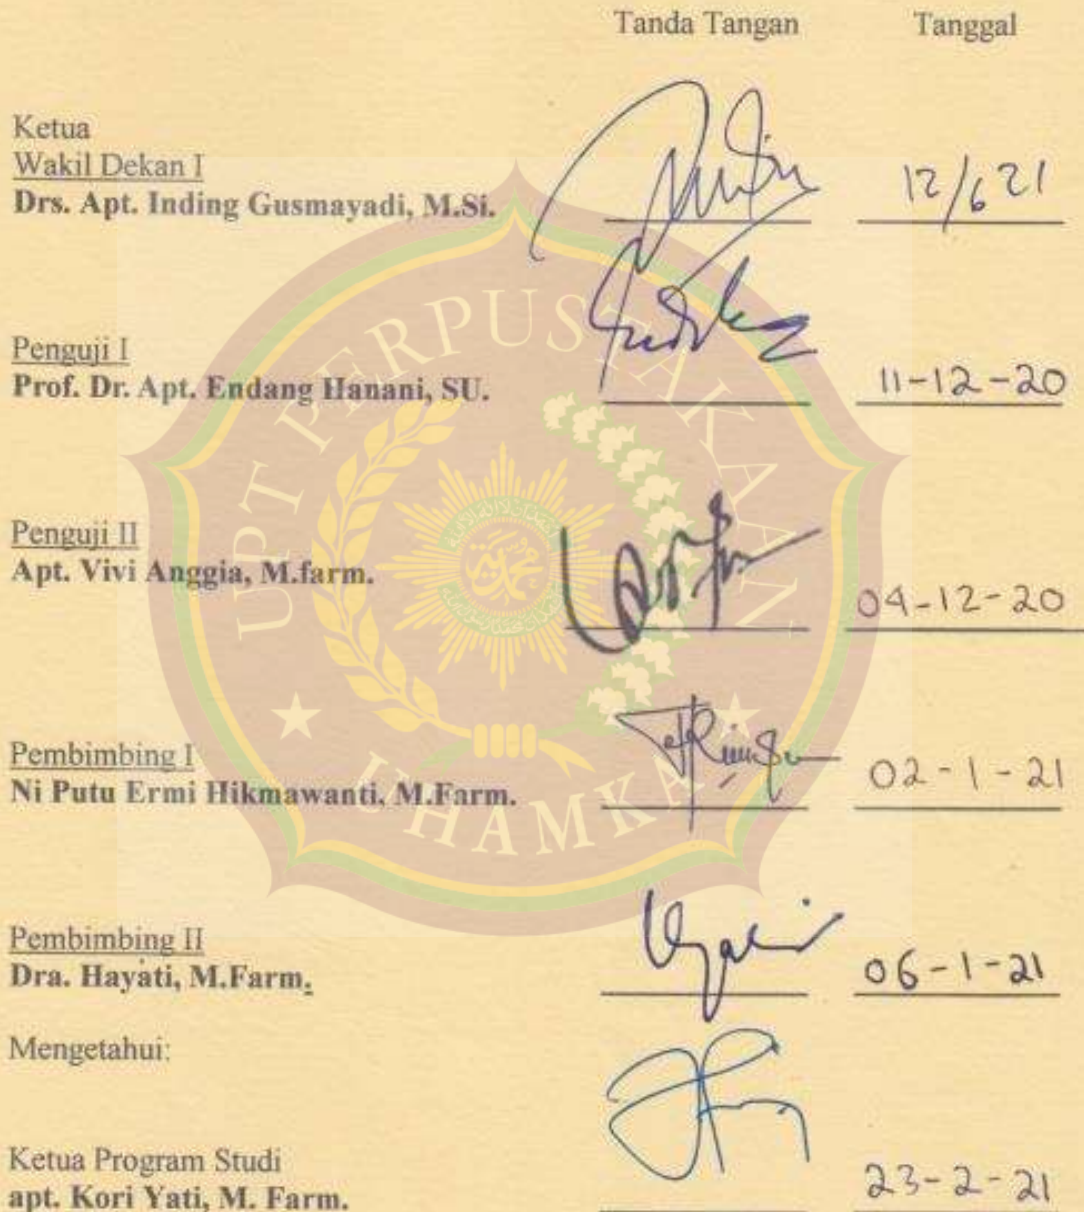 Tanda Tangan Tanggal
Ketua
Wakil Dekan I
Drs. Apt. Inding Gusmayadi, M.Si. 12/6 21
Penguji I
Prof. Dr. Apt. Endang Hanani, SU. 11-12-20
Penguji II
Apt. Vivi Anggia, M.farm. 04-12-20
Pembimbing I
Ni Putu Ermi Hikmawanti, M.Farm. 02-1-21
Pembimbing II
Dra. Hayati, M.Farm. 06-1-21
Mengetahui:
Ketua Program Studi
apt. Kori Yati, M. Farm. 23-2-21
UPT PERPUSTAKAAN
UHAMKA